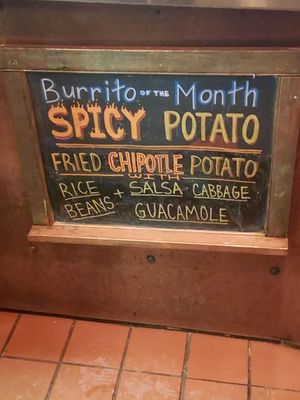 Burrito OF THE Month
SPICY POTATO
FRIED CHIPOTLE POTATO
WITH
RICE + SALSA CABBAGE
BEANS GUACAMOLE